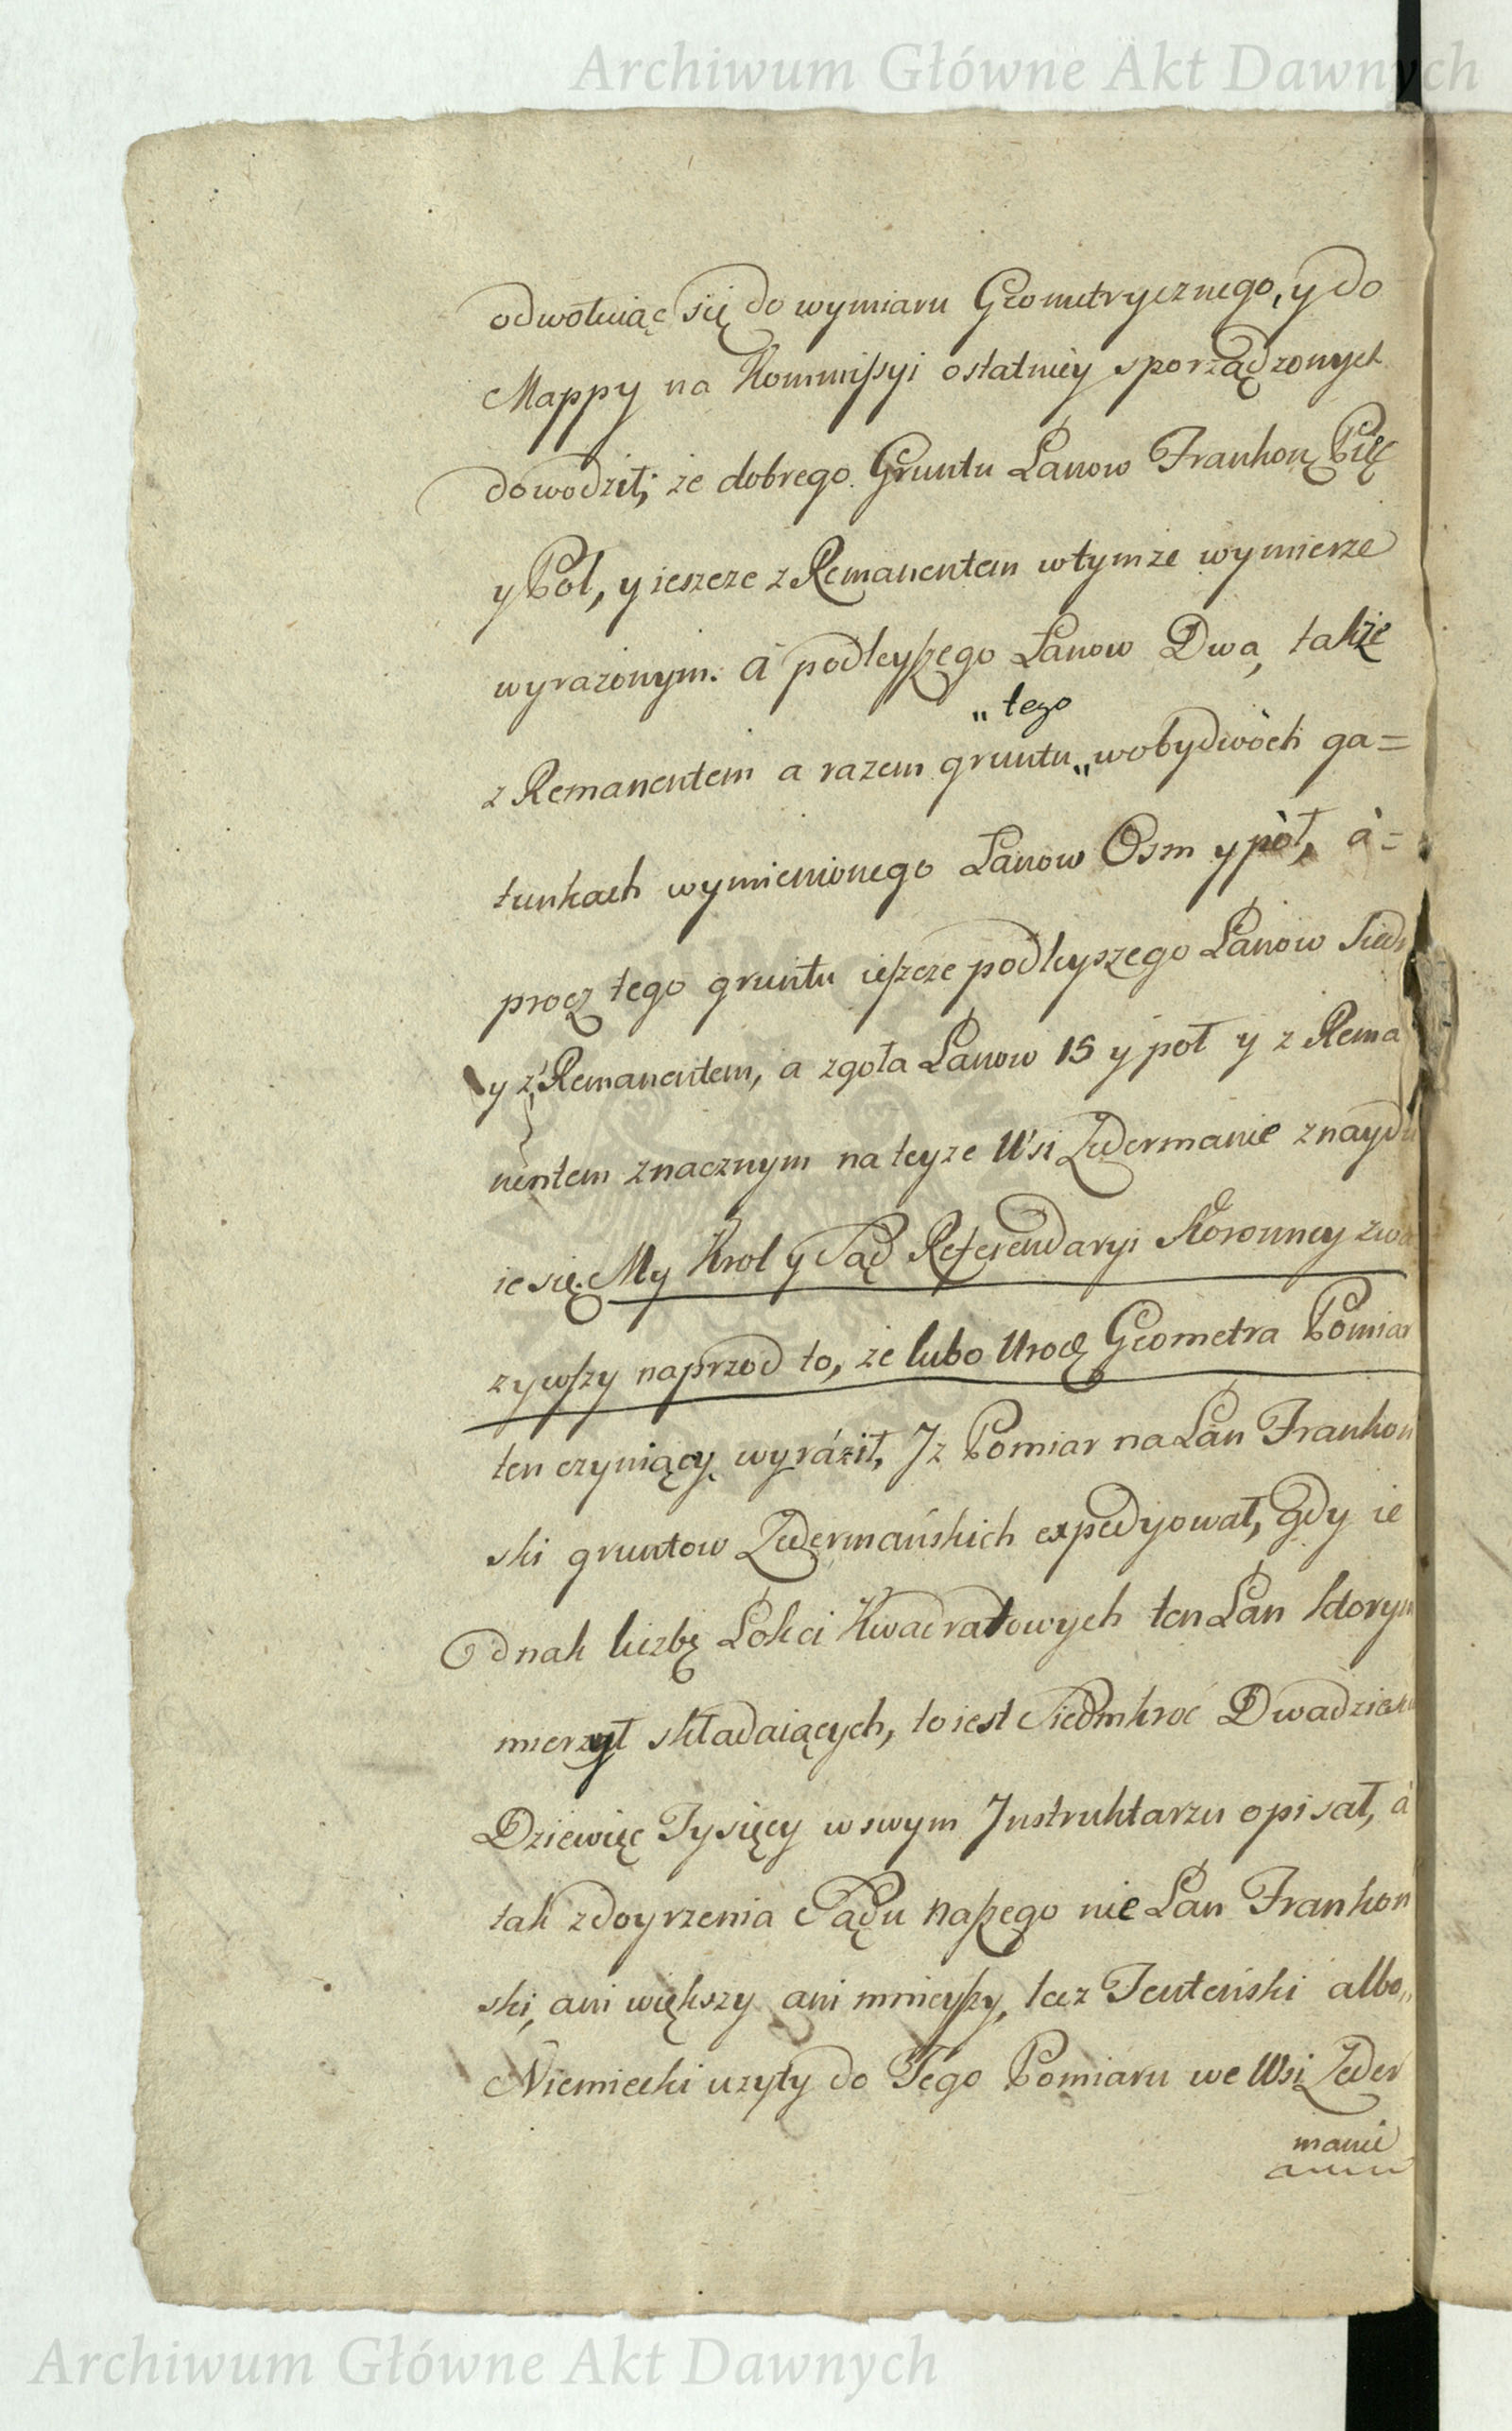 Archiwum Główne Akt Dawnych
odwołuiąc się do wymiaru Geometrycznego, y do
Mappy na Kommißyi ostatniéy sporządzonych
dowodził; że dobrego Gruntu Łanow Frankoń. Pięć
y Pol, y ieszcze z Remanentem wtymże wymierze
wyrażonym. à podleyßego Łanow Dwa, także
„ tego
z Remanentem a razem gruntu „ wobydwóch ga=
tunkach wymienionego Łanow Osm y pòł, à=
procz tego gruntu ießcze podleyszego Łanow Siedm
y z Remanentem, a zgoła Łanow 15 y poł y z Rema
nentem znacznym na teyże Wsi Zedermanie znaydu
ie się. My Krol y Sąd Referendaryi Koronney zwa
żywßzy naprzod to, że lubo Urodz Geometra Pomiar
ten czyniący wyráził, Jż Pomiar na Łan Frankoń
ski gruntow Zedermańskich expedyował, Gdy ie
dnak liczbę Łokci Kwadratowych ten Łan ktorym
mierzył składaiących, to iest Siedmkroć Dwadzieścia
Dziewięć Tysięcy w swym Jnstruktarzu opisał, à
tak zdoyrzenia Sądu naßego nie Łan Frankoń
ski, ani większy ani mnieyßy, lecz Teuteński albo„
Niemiecki użyty do Tego Pomiaru we Wsi Zeder
manie
Archiwum Główne Akt Dawnych